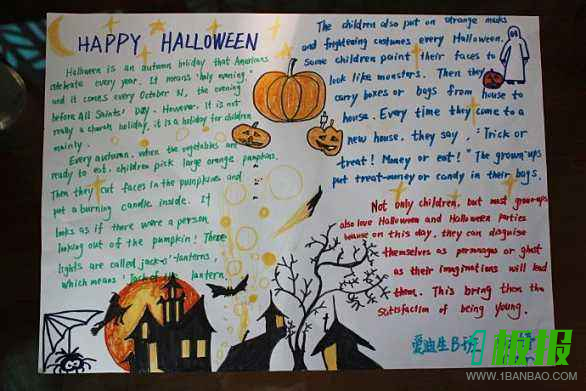 HAPPY HALLOWEEN
Halloween is an autumn holiday that Americans
celebrate every year. It means "holy evening,"
and it comes every October 31, the evening
before All Saints' Day. However, it is not
really a church holiday, it is a holiday for children
mainly.
Every autumn, when the vegetables are
ready to eat, children pick large orange pumpkins.
Then they cut faces in the pumpkins and
put a burning candle inside. It
looks as if there were a person
looking out of the pumpkin! These
lights are called jack-o'-lanterns,
which means "Jack of the lantern".
The children also put on strange masks
and frightening costumes every Halloween.
Some children paint their faces to
look like monsters. Then they
carry boxes or bags from house to
house. Every time they come to a
new house, they say, "Trick or
treat! Money or eat!" The grown-ups
put treat-money or candy in their bags.
Not only children, but most grown-ups
also love Halloween and Halloween parties
because on this day, they can disguise
themselves as personages or ghost
as their imaginations will lead
them. This bring them the
satisfaction of being young.
爱迪生B班
1板报
WWW.1BANBAO.COM